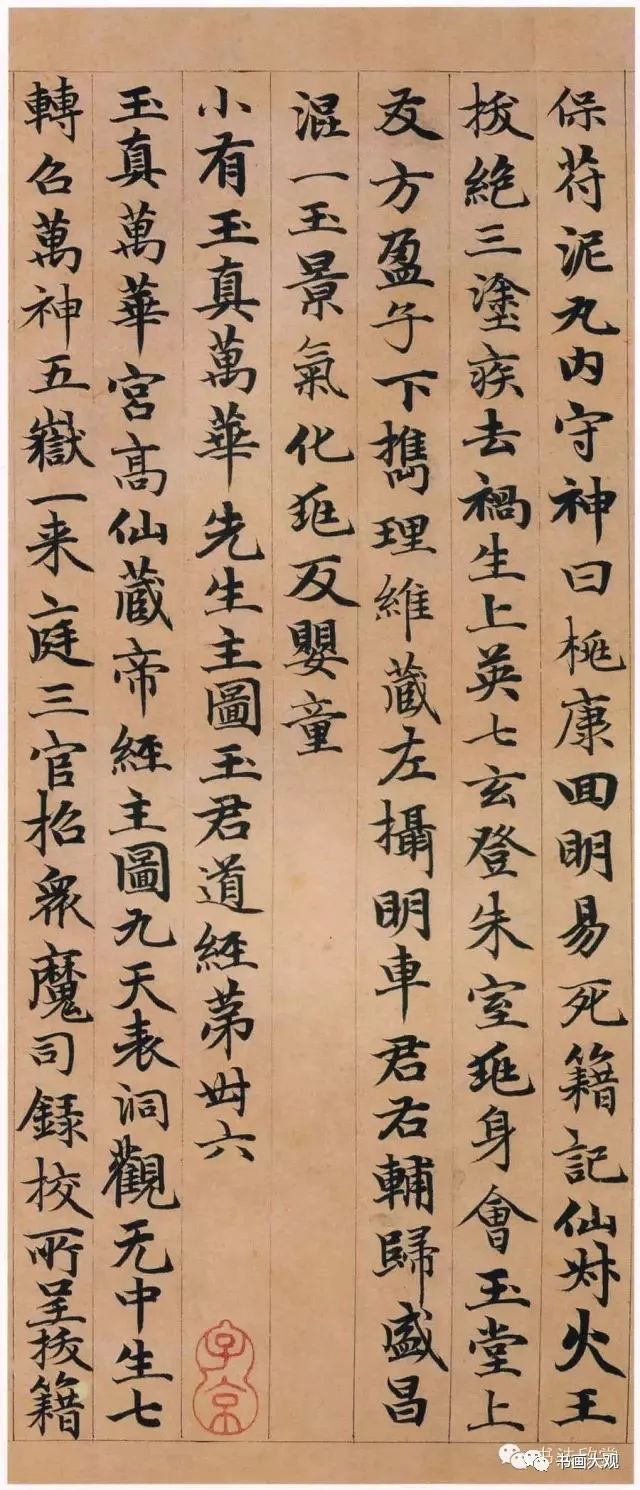 保苻泥丸内守神曰桃康回明易死籍記仙火王
拔絶三塗疾去禍生上英七玄登朱室身會玉堂上
友方盈子下擕理維藏左攝明車君右輔歸盛昌
混一玉景氣化反嬰童
小有玉真萬華先生主圖玉君道經苐卅六
玉真萬華宮高仙藏帝經主圖九天表洞觀无中生七
轉召萬神五嶽一来庭三官招衆魔司録校所呈拔籍
子京
书法欣赏
书画大观